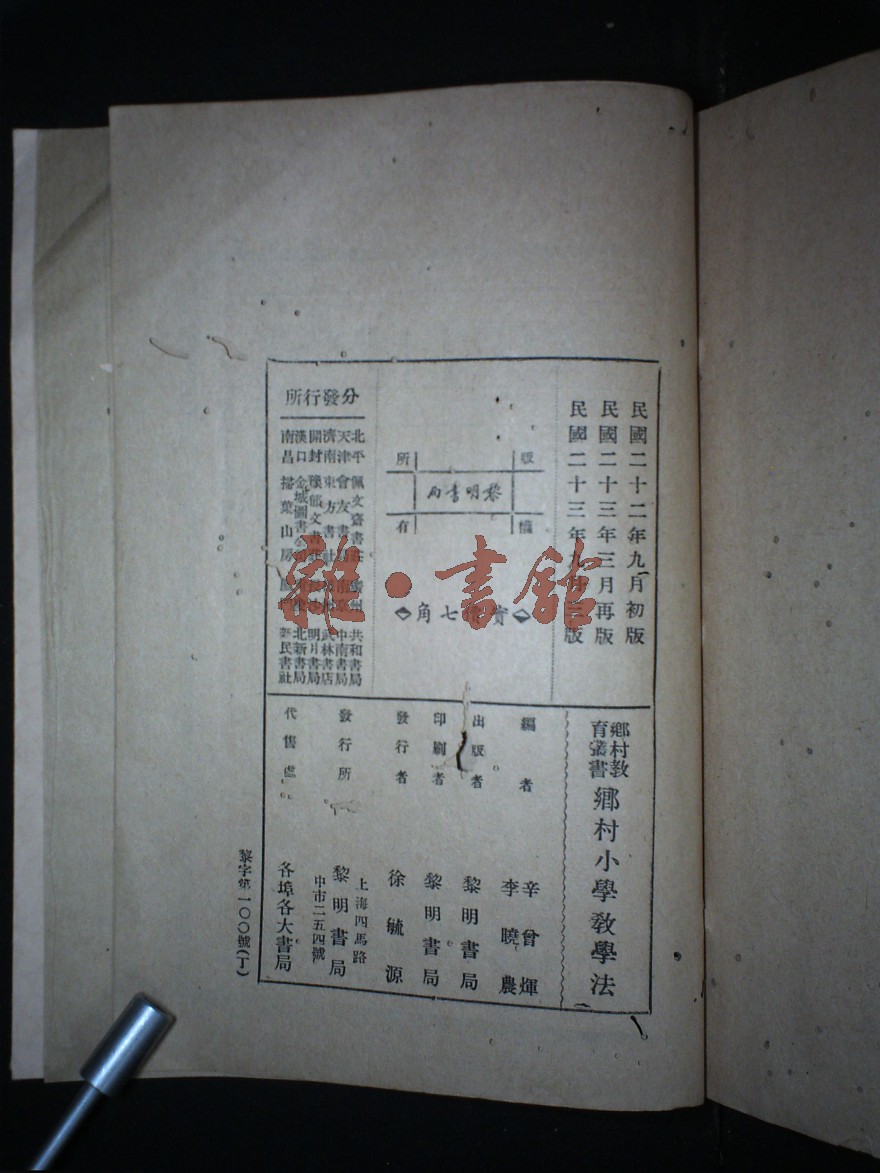 民國二十二年九月初版
民國二十三年三月再版
民國二十三年九月三版
版權所有
黎明書局
實價七角
分發行所
北平 佩文齋書莊 廣州 共和書局
天津 會友書局 南京 中南書局
濟南 東方書社 武林書店
開封 豫郁文書莊 明月書局
漢口 金城圖書公司 北新書局
南昌 掃葉山房 新民書社
鄉村教育叢書 鄉村小學教學法
編者 辛曾煇 李曉農
出版者 黎明書局
印刷者 黎明書局
發行者 徐毓源
發行所 黎明書局
上海四馬路
中市二五四號
代售處 各埠各大書局
黎字第一〇〇號(丁)
雜·書館